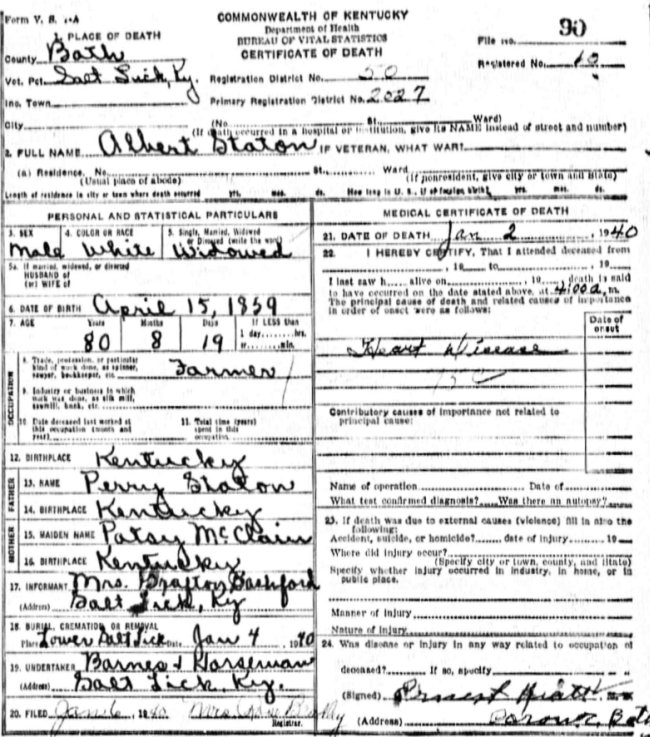 Form V. S. 1-A
COMMONWEALTH OF KENTUCKY
Department of Health
BUREAU OF VITAL STATISTICS
CERTIFICATE OF DEATH
File no. 90
Registered No. 10
1. PLACE OF DEATH
County Bath
Vot. Pct. Salt Lick, Ky.
Registration District No. 50
Inc. Town
Primary Registration District No. 2027
City (No. St. Ward)
(If death occurred in a hospital or institution, give its NAME instead of street and number)
2. FULL NAME Albert Staton IF VETERAN, WHAT WAR?
(a) Residence. No. St., Ward
(Usual place of abode) (If nonresident, give city or town and State)
Length of residence in city or town where death occurred yrs. mos. ds. How long in U. S., if of foreign birth? yrs. mos. ds.
PERSONAL AND STATISTICAL PARTICULARS
3. SEX 4. COLOR OR RACE 5. Single, Married, Widowed or Divorced (write the word)
Male White Widowed
5a. If married, widowed, or divorced
HUSBAND of
(or) WIFE of
6. DATE OF BIRTH April 15, 1859
7. AGE Years Months Days If LESS than
80 8 19 1 day, hrs.
or min.
OCCUPATION
8. Trade, profession, or particular
kind of work done, as spinner, Farmer
sawyer, bookkeeper, etc.
9. Industry or business in which
work was done, as silk mill,
sawmill, bank, etc.
10. Date deceased last worked at
this occupation (month and
year)
11. Total time (years)
spent in this
occupation
12. BIRTHPLACE Kentucky
FATHER
13. NAME Perry Staton
14. BIRTHPLACE Kentucky
MOTHER
15. MAIDEN NAME Patsy McClain
16. BIRTHPLACE Kentucky
17. INFORMANT Mrs. Brafton Bashford
(Address) Salt Lick, Ky
18. BURIAL, CREMATION OR REMOVAL
Place Lower Salt Lick Date Jan 4 1940
19. UNDERTAKER Barnes & Horseman
(Address) Salt Lick, Ky.
20. FILED Jan 6 1940 Mrs.
Registrar.
MEDICAL CERTIFICATE OF DEATH
21. DATE OF DEATH Jan 2, 1940
22. I HEREBY CERTIFY, That I attended deceased from
, 19 to , 19
I last saw h alive on , 19 , death is said
to have occurred on the date stated above, at 4:00 a. m.
The principal cause of death and related causes of importance
in order of onset were as follows:
Date of
onset
Heart Disease
Contributory causes of importance not related to
principal cause:
Name of operation Date of
What test confirmed diagnosis? Was there an autopsy?
23. If death was due to external causes (violence) fill in also the
following:
Accident, suicide, or homicide? date of injury 19
Where did injury occur?
(Specify city or town, county, and State)
Specify whether injury occurred in industry, in home, or in
public place.
Manner of injury
Nature of injury
24. Was disease or injury in any way related to occupation of
deceased? If so, specify
(Signed) Ernest
(Address)